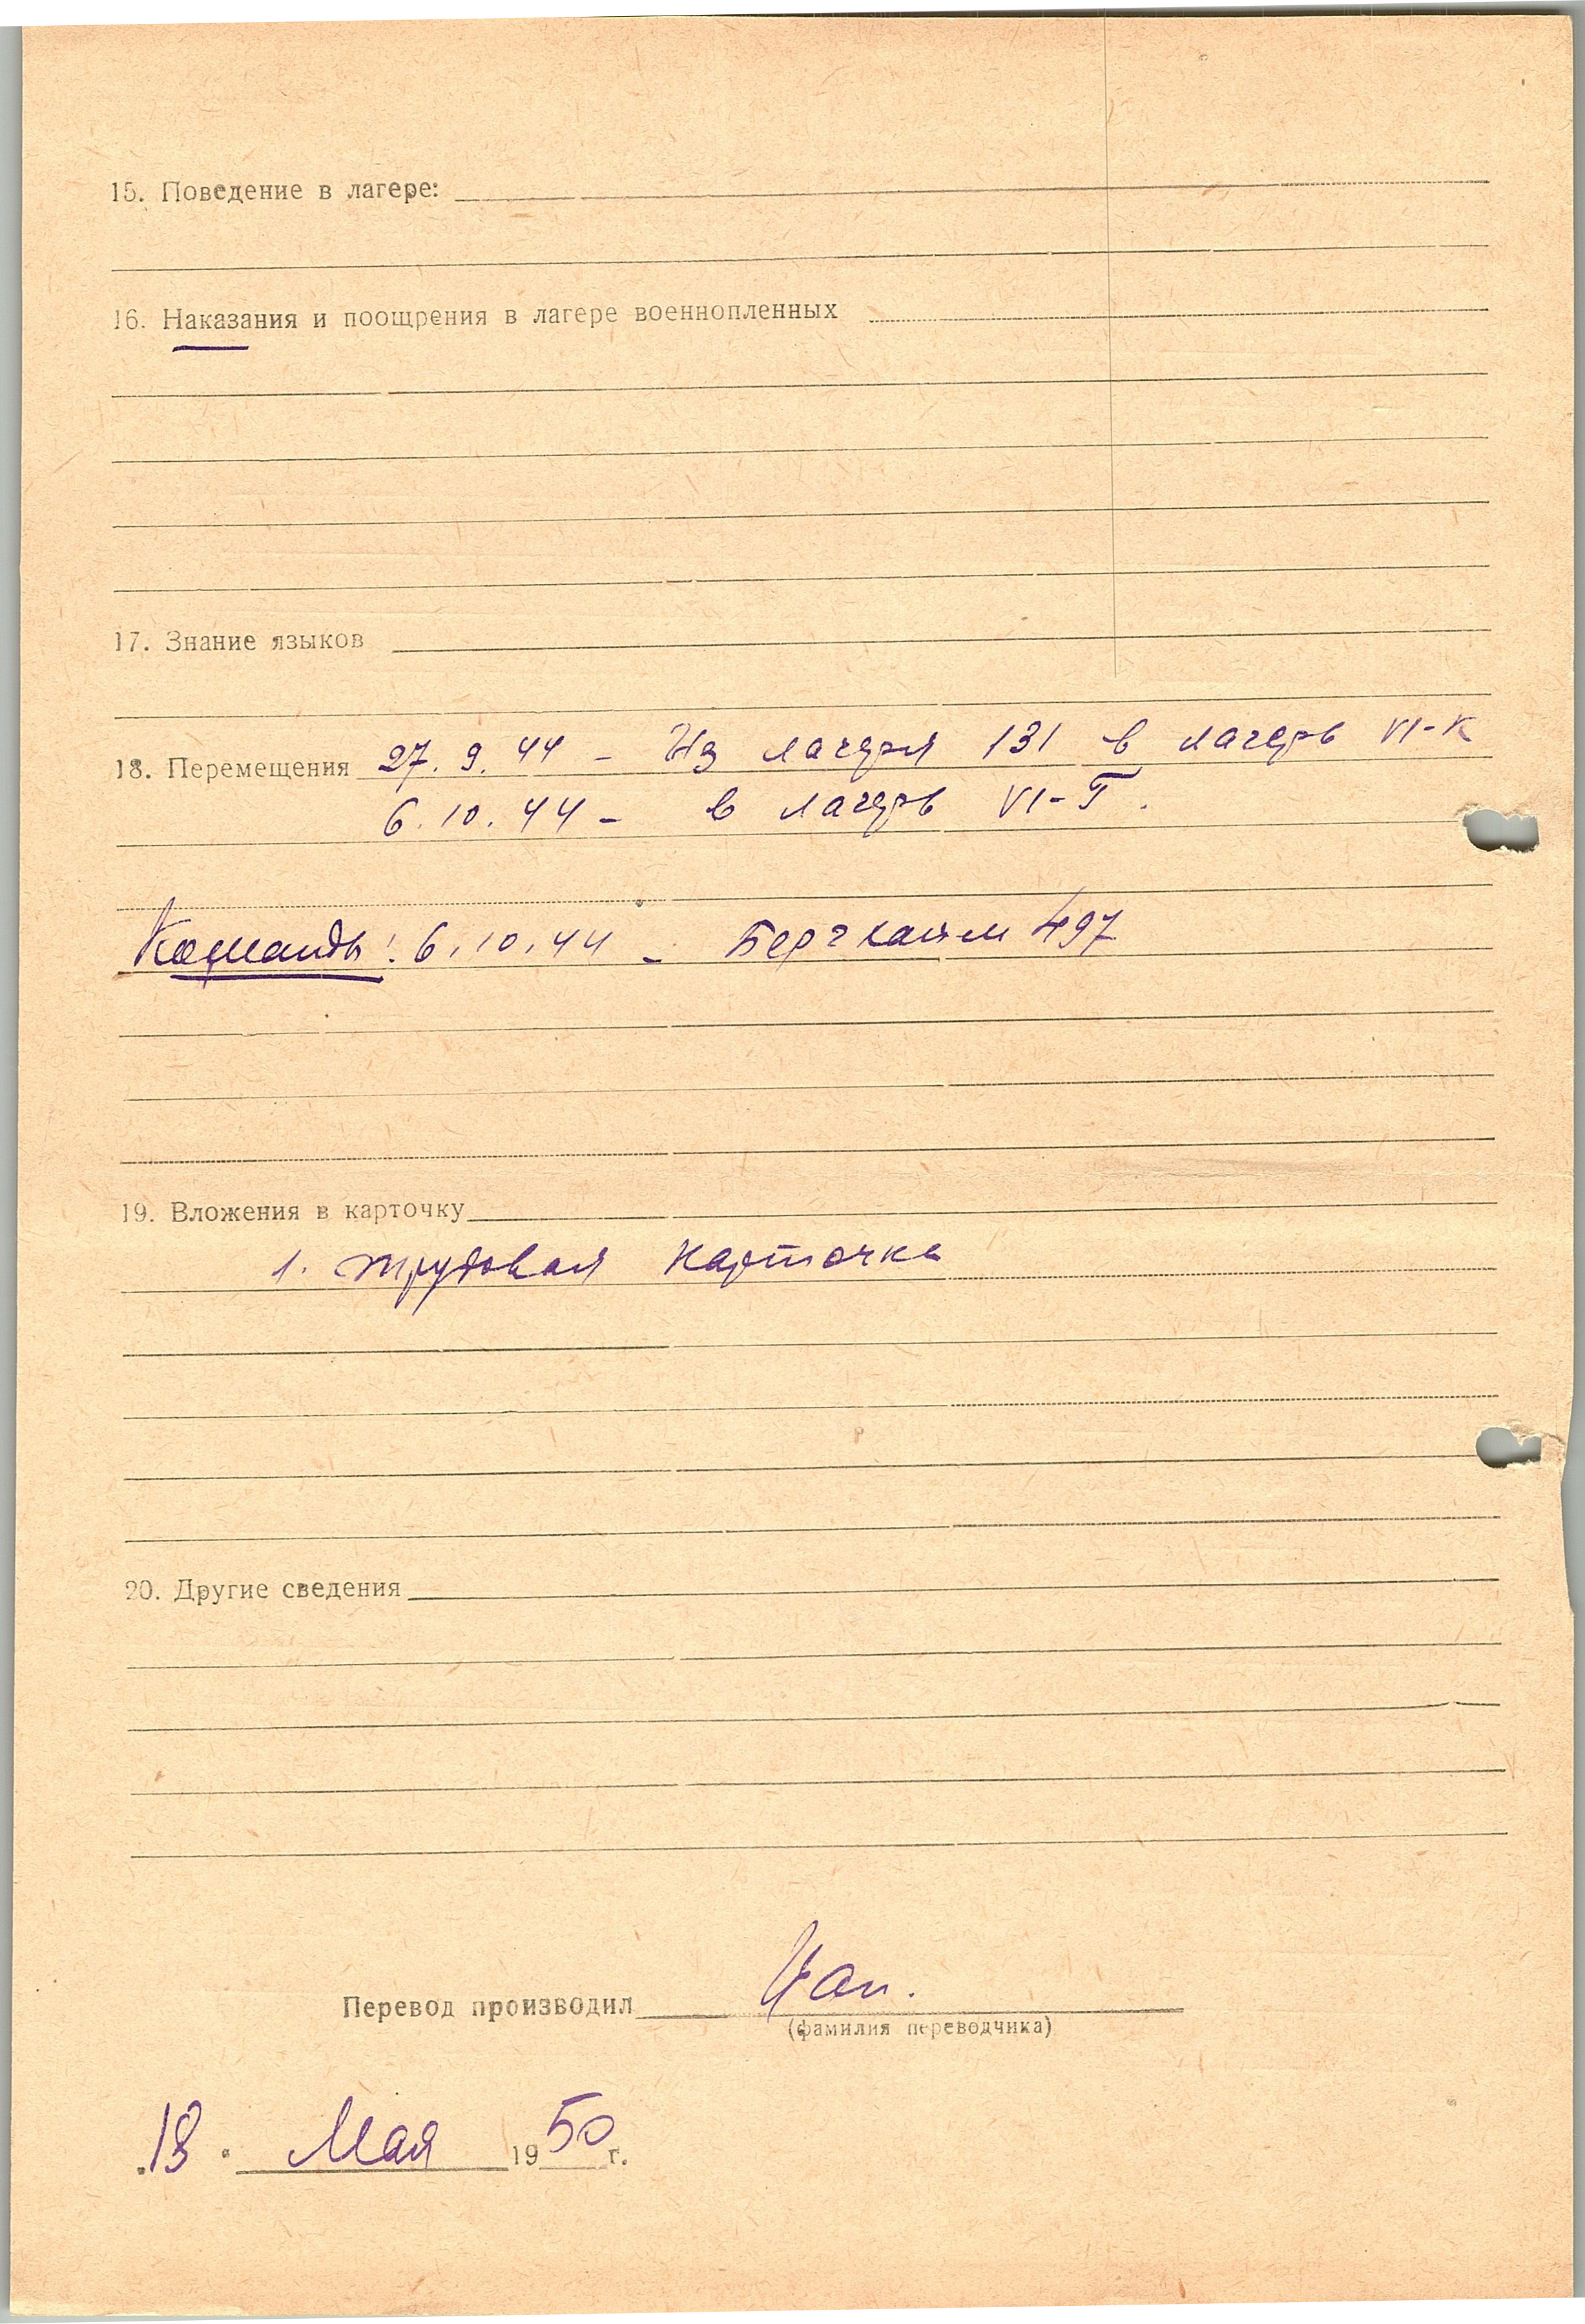 15. Поведение в лагере:
16. Наказания и поощрения в лагере военнопленных
17. Знание языков
18. Перемещения 27. 9. 44 - Из лагеря 131 в лагерь VI-К
6. 10. 44 - в лагерь VI-Г.
Команды: 6. 10. 44 - Бергхайм 497
19. Вложения в карточку
1. трудовая карточка
20. Другие сведения
Перевод производил
(фамилия переводчика)
„18" Мая 1950 г.